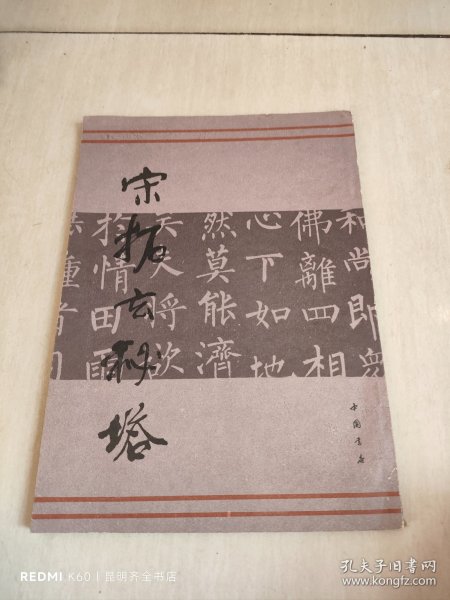 宋拓玄秘塔
和尚即衆
佛離四相
心下如地
然莫能濟
夫將欲
情田雨
種者
中国书店
REDMI K60 | 昆明齐全书店
孔夫子旧书网
www.kongfz.com